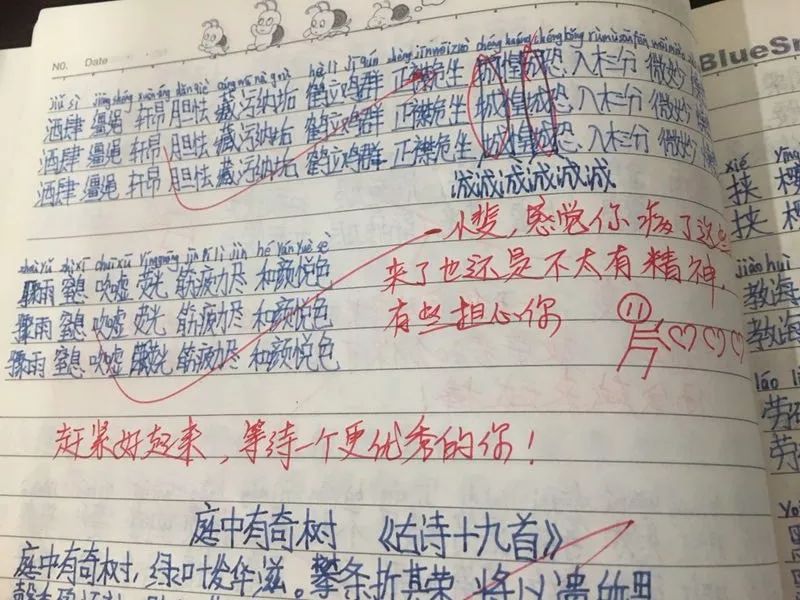 No. Date
jiǔ sì jiāng shéng xuān áng dǎn qiè cáng wū nà gòu hè lì jī qún zhèng jīn wēi zuò chéng huáng chéng kǒng rù mù sān fēn wēi miào
酒肆 缰绳 轩昂 胆怯 藏污纳垢 鹤立鸡群 正襟危坐 惶恐 入木三分 微妙
酒肆 缰绳 轩昂 胆怯 藏污纳垢 鹤立鸡群 正襟危坐 惶恐 入木三分 微妙
酒肆 缰绳 轩昂 胆怯 藏污纳垢 鹤立鸡群 正襟危坐 惶恐 入木三分 微妙
诚诚诚诚诚诚
zhòu yǔ zhì xī chuī xū yíng guāng jīn pí lì jìn hé yán yuè sè
骤雨 窒息 吹嘘 荧光 筋疲力尽 和颜悦色
骤雨 窒息 吹嘘 荧光 筋疲力尽 和颜悦色
骤雨 窒息 吹嘘 荧光 筋疲力尽 和颜悦色
小斐,感觉你病了这些
来了也还是不太有精神.
有些担心你
赶紧好起来,等待一个更优秀的你!
庭中有奇树 《古诗十九首》
庭中有奇树,绿叶发华滋。攀条折其荣,将以遗所思
BlueSm
xié yīng
挟 樱
挟 樱
jiào huì
教诲
教诲
láo lì
劳
劳